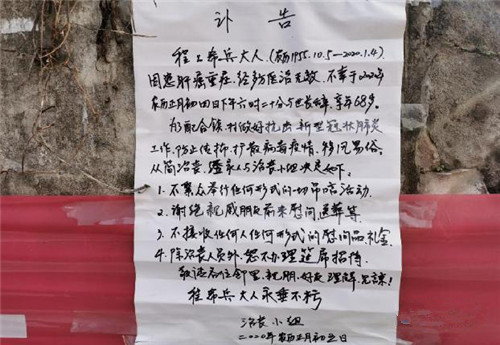 讣 告
程公希兵大人(农历1955.10.5—2020.1.4),
因患肝癌重症,经多方医治无效,不幸于2020年
农历正月初四日下午六时二十分与世长辞,享年68岁。
为配合镇、村做好抗击新型冠状肺炎
工作,防止传播、扩散病毒疫情,移风易俗,
从简治丧,家人与治丧小组决定如下:
1. 不聚众举行任何形式的一切吊唁活动.
2. 谢绝亲戚朋友前来慰问、送葬等.
3. 不接收任何人任何形式的慰问品、礼金.
4. 除治丧人员外,恕不办理筵席招待.
敬请各位邻里、亲朋、好友理解、见谅!
程希兵大人永垂不朽
治丧小组
二〇二〇年农历正月初五日